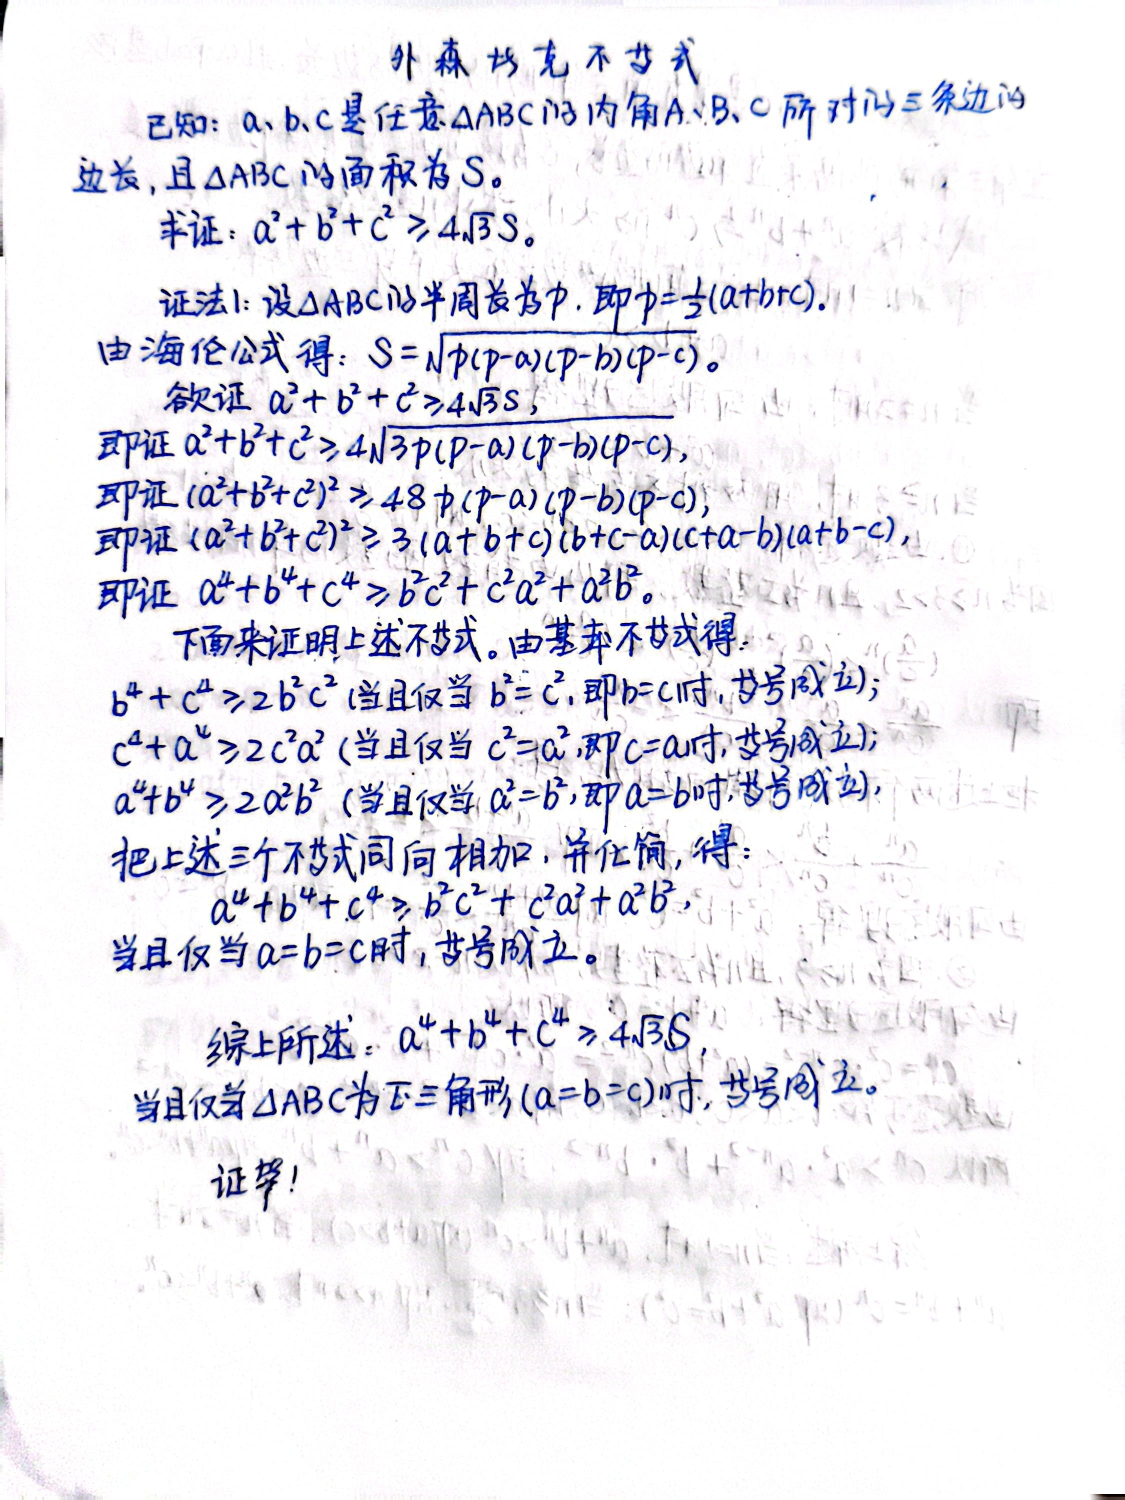 外森比克不等式
已知：a、b、c是任意△ABC的内角A、B、C所对的三条边的
边长，且△ABC的面积为S。
求证：a²+b²+c²≥4√3S。
证法1：设△ABC的半周长为p，即p=½(a+b+c)。
由海伦公式得：S=√p(p-a)(p-b)(p-c)。
欲证 a²+b²+c²≥4√3S，
即证 a²+b²+c²≥4√3p(p-a)(p-b)(p-c)，
即证 (a²+b²+c²)²≥48p(p-a)(p-b)(p-c)，
即证 (a²+b²+c²)²≥3(a+b+c)(b+c-a)(c+a-b)(a+b-c)，
即证 a⁴+b⁴+c⁴≥b²c²+c²a²+a²b²。
下面来证明上述不等式。由基本不等式得：
b⁴+c⁴≥2b²c²(当且仅当 b²=c²，即b=c时，等号成立)；
c⁴+a⁴≥2c²a²(当且仅当 c²=a²，即c=a时，等号成立)；
a⁴+b⁴≥2a²b²(当且仅当 a²=b²，即a=b时，等号成立)，
把上述三个不等式同向相加，并化简，得：
a⁴+b⁴+c⁴≥b²c²+c²a²+a²b²，
当且仅当a=b=c时，等号成立。
综上所述：a⁴+b⁴+c⁴≥4√3S，
当且仅当△ABC为正三角形(a=b=c)时，等号成立。
证毕！